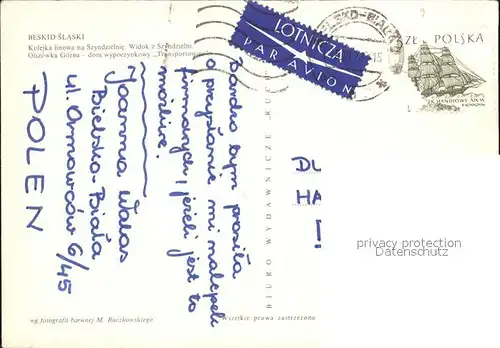 BESKID ŚLĄSKI
Kolejka linowa na Szyndzielnię. Widok z Szyndzielni
Olszówka Górna – dom wypoczynkowy „Transportowiec”
LOTNICZA
PAR AVION
BIELSKO-BIAŁA
ZŁ POLSKA
Bardzo bym prosiła
o przysłanie mi nalepek
firmowych, jeżeli jest to
możliwe.
Joanna Walas
Bielsko-Biała
ul. Armowców 6/45
POLEN
BIURO WYDAWNICZE RUCH
DL
HA
privacy protection
Datenschutz
wg fotografii barwnej M. Raczkowskiego
Wszelkie prawa zastrzeżone